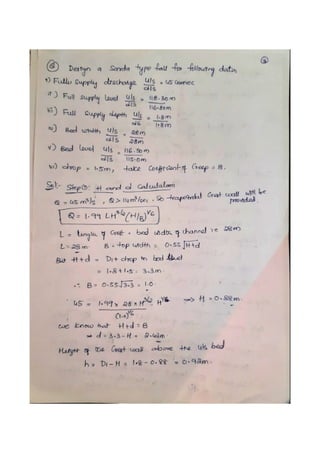 ⑥ Design a Sarda type fall for following data
i) Fully Supply discharge u/s / d/s = 45 cumec
ii) Full supply level u/s / d/s = 118.30m / 116.80m
iii) Full supply depth u/s / d/s = 1.8m / 1.8m
iv) Bed width u/s / d/s = 28m / 28m
v) Bed level u/s / d/s = 116.50m / 115.0m
vi) drop = 1.5m, take Coefficient of Creep = 8.
Sol:- Step①: H and d Calculation
Q = 45 m³/s, Q > 14 m³/sec. So trapezoidal Crest wall will be provided
Q = 1.99 LH^3/2 (H/B)^1/6
L = length of Crest = bed width of channel = 28m
L = 28m B = top width = 0.55 √H+d
But H+d = D₁ + drop in bed level
= 1.8+1.5 = 3.3m
∴ B = 0.55√3.3 = 1.0
45 = 1.99 x 28 x H^3/2 H^1/6 / (1.0)^1/6 => H = 0.88m.
we know that H+d = B
=> d = 3.3-H = 2.42m
Height of the Crest wall above the u/s bed
h = D₁-H = 1.8-0.88 = 0.92m.